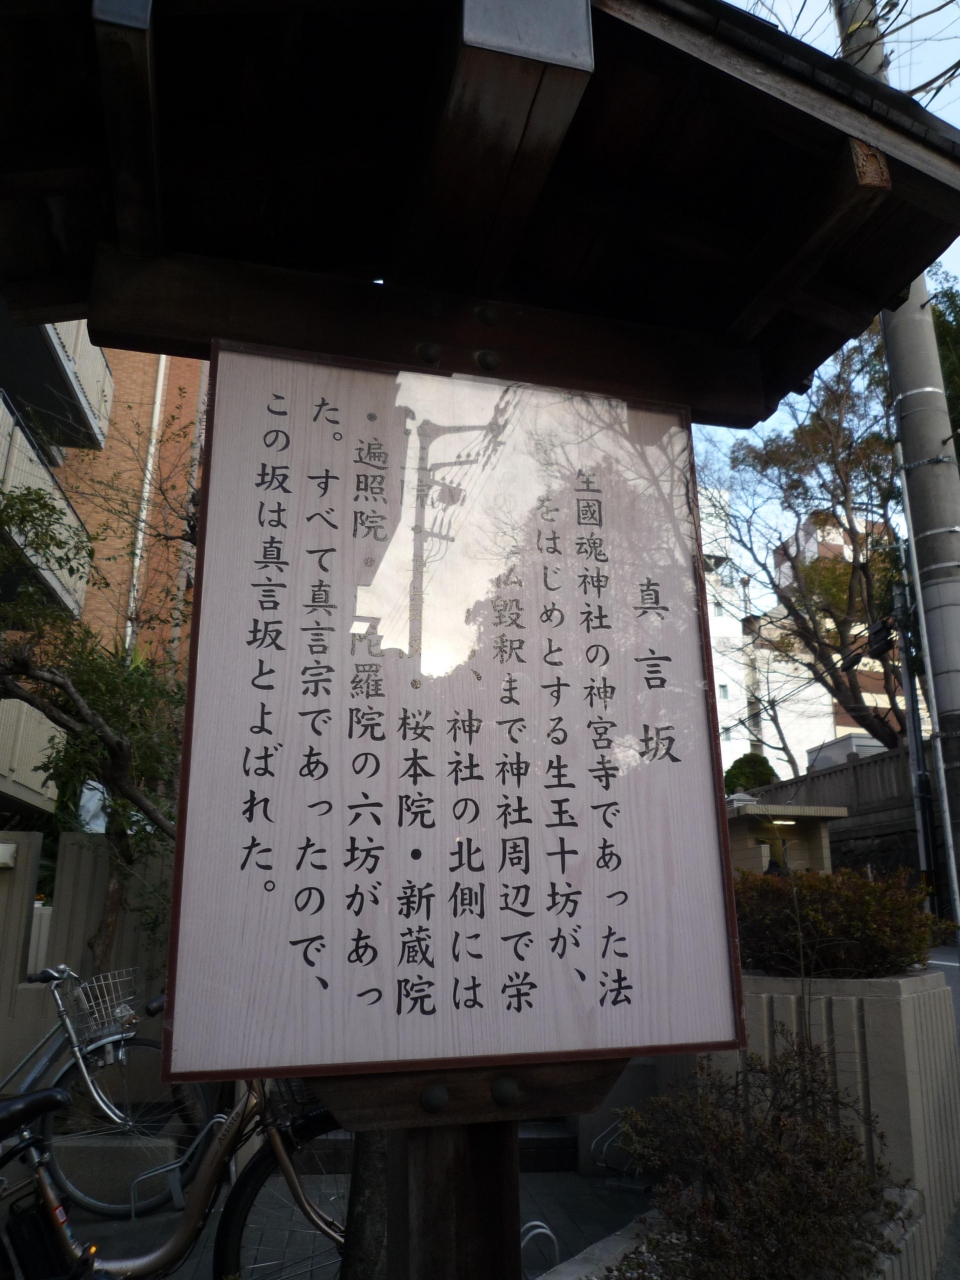 真言坂
生國魂神社の神宮寺であった法
をはじめとする生玉十坊が、
仏毀釈まで神社周辺で栄
神社の北側には
桜本院・新蔵院
・遍照院・
陀羅院の六坊があっ
た。すべて真言宗であったので、
この坂は真言坂とよばれた。